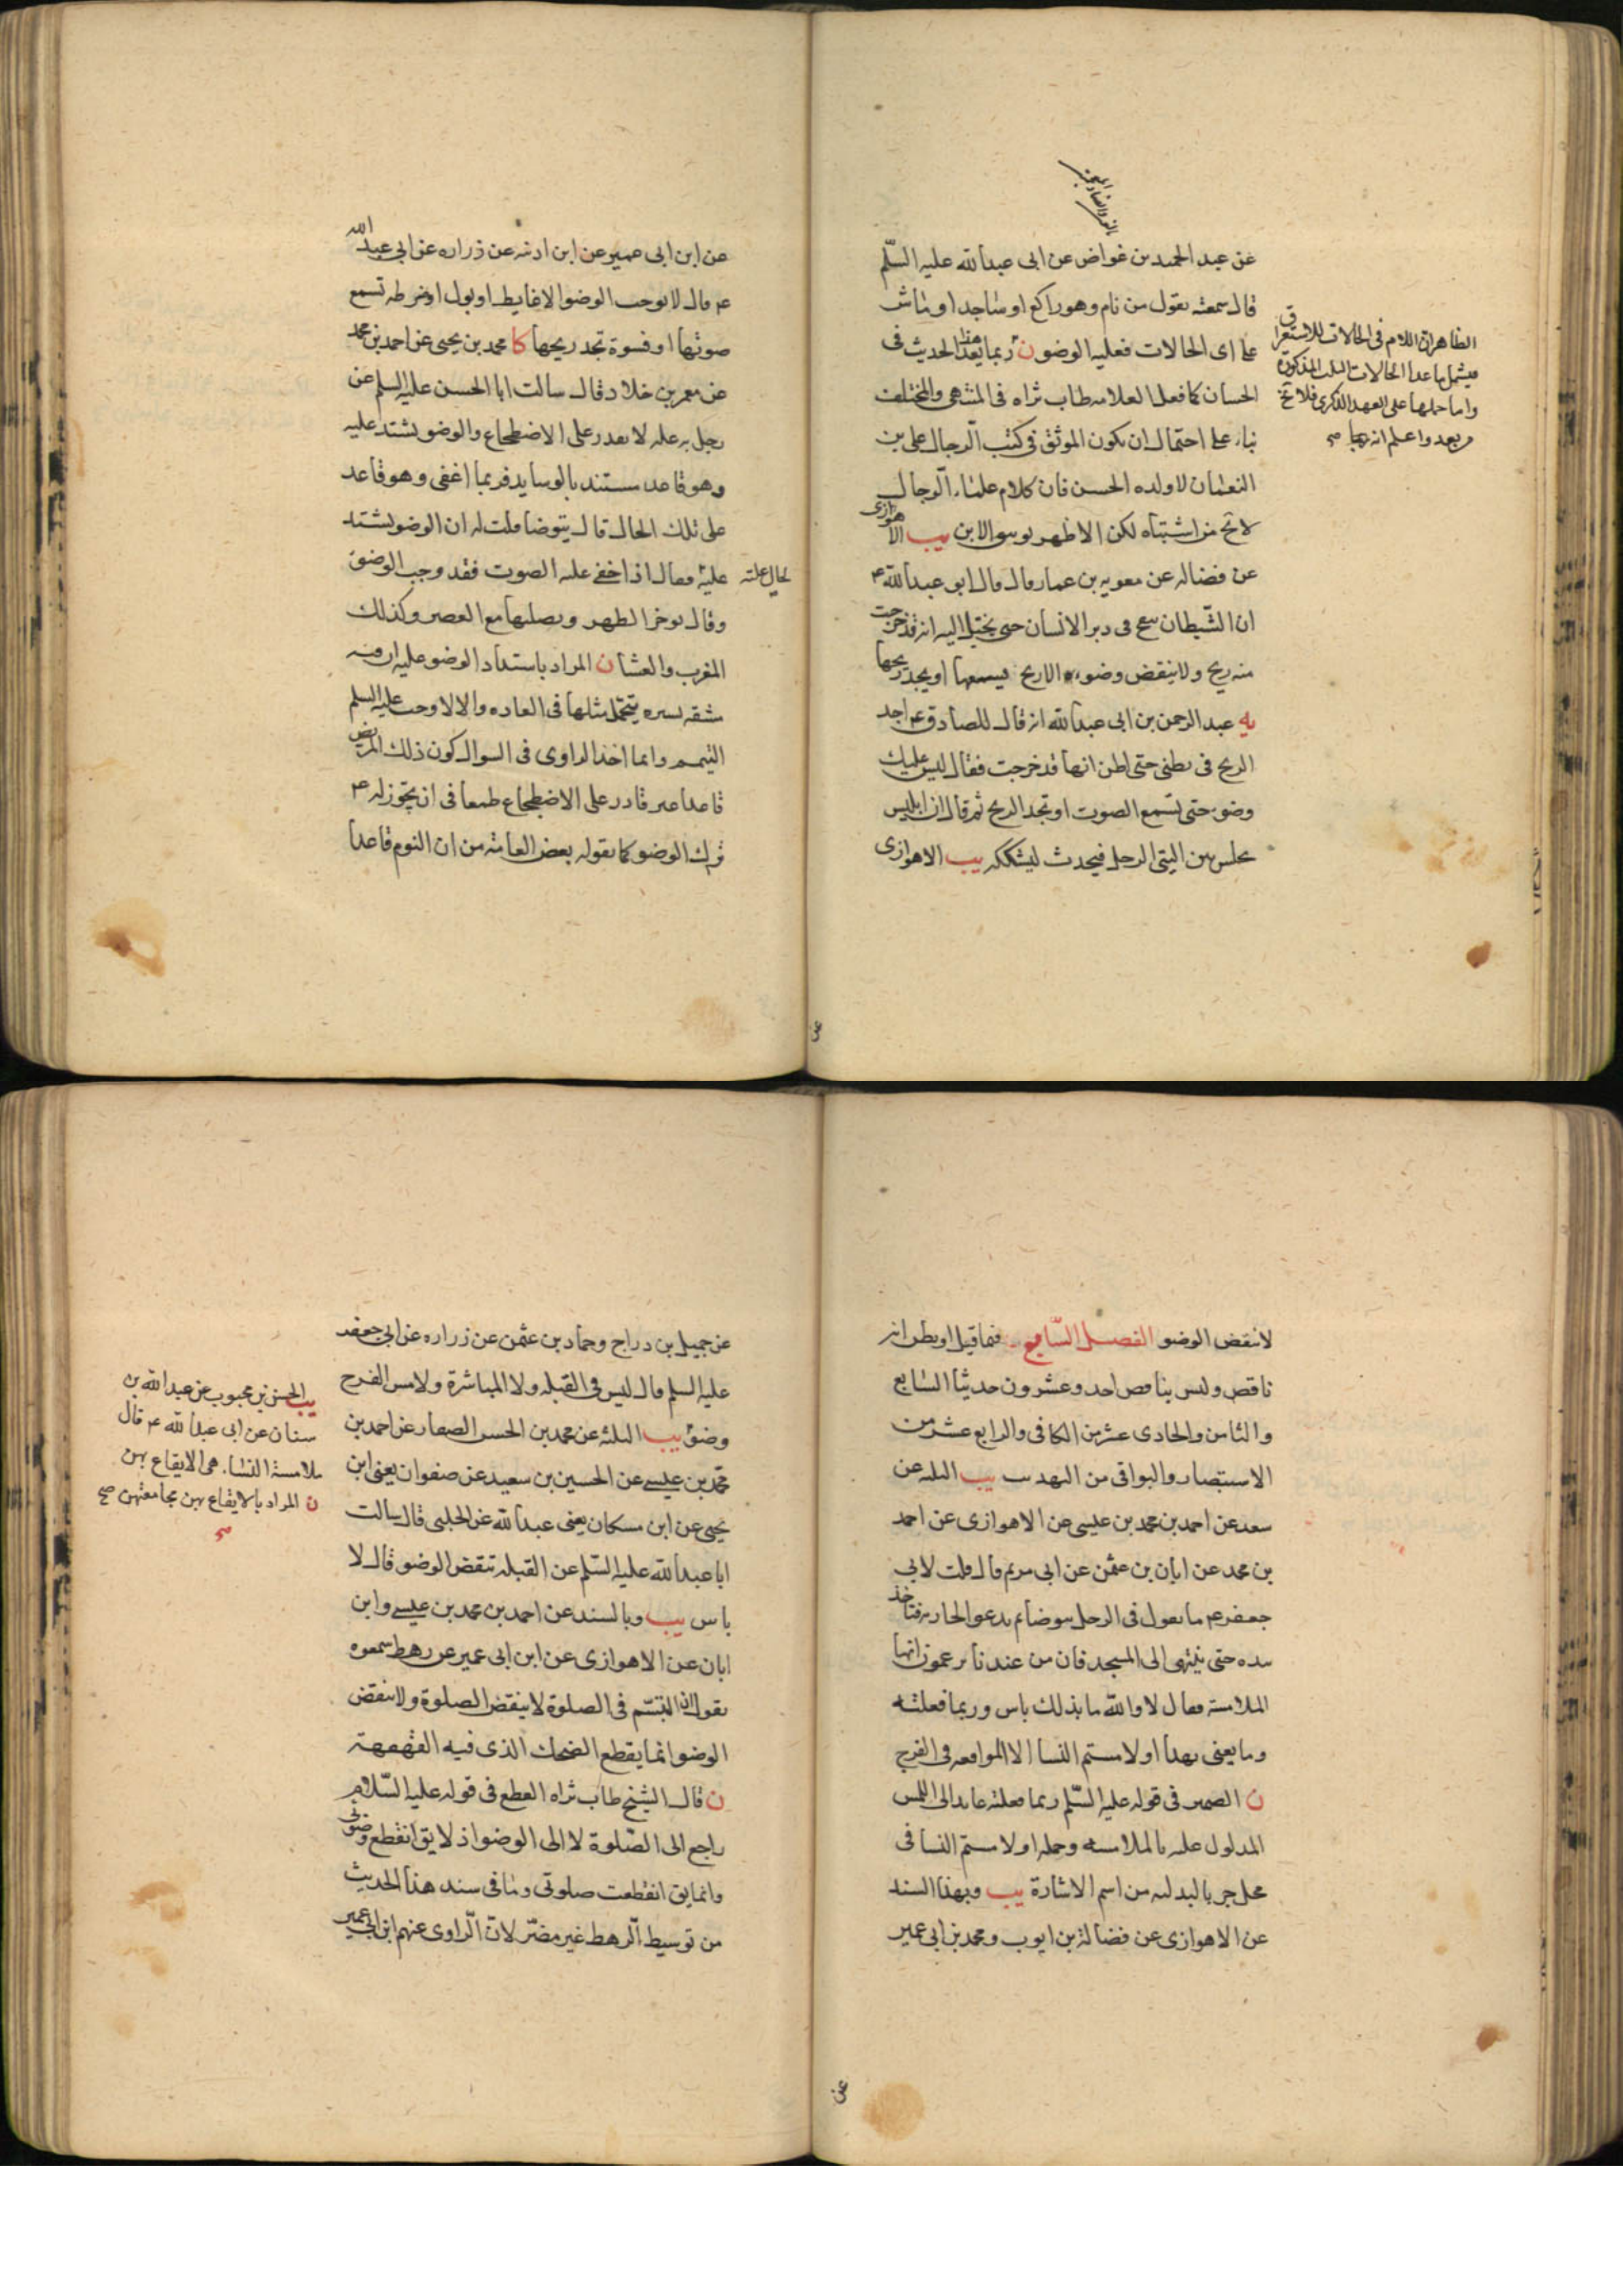 عن عبد الحميد بن غواض عن ابى عبدالله عليه السّلم
قال سمعته يقول من نام وهو راكع او ساجد او ماش
على اى الحالات فعليه الوضو ن ربما يعد هذا الحديث فى
الحسان كما فعل العلامه طاب ثراه فى المنتهى والمختلف
بناء على احتمال ان يكون الموثق فى كتب الرجال على بن
النعمان لا ولده الحسن فان كلام علماء الرجال
لا يخ من اشتباه لكن الاظهر توثيق الابن يب الاهوازى
عن فضاله عن معويه بن عمار قال قال ابو عبدالله ع
ان الشيطان ينفخ فى دبر الانسان حتى يخيل اليه انه قد خرجت
منه ريح ولا ينقض وضوءه الا ريح يسمعها او يجد ريحها
يه عبد الرحمن بن ابى عبدالله انه قال للصادق ع اجد
الريح فى بطنى حتى اظن انها قد خرجت فقال ليس عليك
وضوء حتى تسمع الصوت او تجد الريح ثم قال ان ابليس
يجلس بين اليتى الرجل فيحدث ليشككه يب الاهوازى
الظاهر ان اللام فى الحالات للاستغراق
فيشمل ما عدا الحالات الثلث المذكورة
واما حملها على العهد الذكرى فلا يخ
من بعد واعلم انه
عن
عن ابن ابى عمير عن ابن اذينه عن زراره عن ابى عبد الله
ع قال لا يوجب الوضو الا غايط او بول او ضرطه تسمع
صوتها او فسوة تجد ريحها كا محمد بن يحيى عن احمد بن محمد
عن معمر بن خلاد قال سالت ابا الحسن عليه السلم عن
رجل به عله لا يقدر على الاضطجاع والوضو يشتد عليه
وهو قاعد مستند بالوسايد فربما اغفى وهو قاعد
على تلك الحال قال يتوضا قلت له ان الوضو يشتد
عليه لحال علته فقال اذا خفى عليه الصوت فقد وجب الوضوء
وقال يوخر الظهر ويصليها مع العصر وكذلك
المغرب والعشا ن المراد باشتداد الوضو عليه ان فيه
مشقه يسيره يتحمل مثلها فى العاده والا لاوجب عليه السلم
التيمم وانما اخذ الراوى فى السوال كون ذلك المريض
قاعدا غير قادر على الاضطجاع طمعا فى ان يجوز له ع
ترك الوضو كما يقوله بعض العامة من ان النوم قاعدا
لا ينقض الوضو الفصل السابع فيما قيل او يظن انه
ناقص وليس بناقض احد وعشرون حديثا السابع
والثامن والحادى عشر من الكافى والرابع عشر من
الاستبصار والبواقى من التهذيب يب الثلثه عن
سعد عن احمد بن محمد بن عيسى عن الاهوازى عن احمد
بن محمد عن ابان بن عثمن عن ابى مريم قال قلت لابى
جعفر ع ما تقول فى الرجل يتوضا ثم يدعو الجاريه فتاخذ
بيده حتى ينتهى الى المسجد فان من عندنا يزعمون انها
الملامسة فقال لا والله ما بذلك باس وربما فعلته
وما يعنى بهذا او لامستم النسا الا المواقعه فى الفرج
ن الضمير فى قوله عليه السّلم ربما فعلته عايد الى اللمس
المدلول عليه بالملامسه وجمله او لامستم النسا فى
محل جر بالبدليه من اسم الاشارة يب وبهذا السند
عن الاهوازى عن فضالة بن ايوب ومحمد بن ابى عمير
عن
عن جميل بن دراج وحماد بن عثمن عن زراره عن ابى جعفر
عليه السلم قال ليس فى القبله ولا المباشرة ولا مس الفرج
وضوء يب الثلثه عن محمد بن الحسن الصفار عن احمد بن
محمد بن عيسى عن الحسين بن سعيد عن صفوان يعنى ابن
يحيى عن ابن مسكان يعنى عبدالله عن الحلبى قال سالت
ابا عبدالله عليه السّلم عن القبله تنقض الوضو قال لا
باس يب وبالسند عن احمد بن محمد بن عيسى وابن
ابان عن الاهوازى عن ابن ابى عمير عن رهط سمعوه
يقول ان التبسّم فى الصلوة لا ينقض الصلوة ولا ينقض
الوضو انما يقطع الضحك الذى فيه القهقهة
ن قال الشيخ طاب ثراه القطع فى قوله عليه السّلام
راجع الى الصّلوة لا الى الوضو اذ لا يق انقطع وضوئى
وانما يق انقطعت صلوتى وما فى سند هذا الحديث
من توسيط الرهط غير مضرّ لانّ الرّاوى عنهم ابن ابى عمير
يب الحسن بن محبوب عن عبدالله بن
سنان عن ابى عبدالله ع قال
ملامسة النساء هى الايقاع بهن
ن المراد بالايقاع بهن مجامعتهن صح